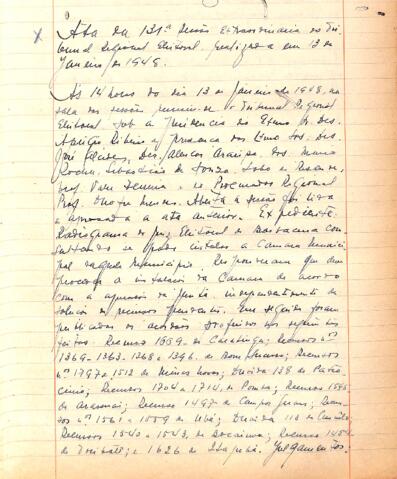 Ata da 131ª sessão extraordinaria do Tri-
bunal Regional Eleitoral, realizada em 13 de
Janeiro de 1948.
Ás 14 horas do dia 13 de Janeiro de 1948, na
sala das sessões, reuniu-se o Tribunal Regional
Eleitoral sob a Presidencia do Exmo Sr. Des.
Amilcar Ribeiro a presença dos Exmos Srs. Des.
José Alcides, Des. Alencar Araripe, Drs. Mario
Rocha, Sebastião de Souza, e
Prof. e o Procurador Regional
Prof. Onofre Mendes. Aberta a sessão foi lida
e aprovada a ata anterior. Expediente:
Radiograma do Juiz Eleitoral de Barbacena con-
sultando se pode instalar a Camara Munici-
pal daquele municipio. Responderam que deve
proceder a instalação da Camara de acordo
com a da Junta, independentemente da
solução de recursos pendentes. Em seguida foram
publicados os acordãos proferidos nos seguintes
feitos: Recurso 1559 de Caratinga; Recursos nºs
1369-1363-1368 e 1396, de Bom Sucesso; Recursos
nºs 1797 e 1512 de Minas Novas; Duvida 138 de Patro-
cinio; Recursos 1704 e 1714, de Pomba; Recurso 1595
de Araxá; Recurso 1497 de Campos Gerais; Recur-
sos nºs 1561 e 1559 de Ubá; Duvida 112 de
Recursos 1540 e 1543, de Bocaiuva; Recurso 1454
de e 1626 de Julgamentos.